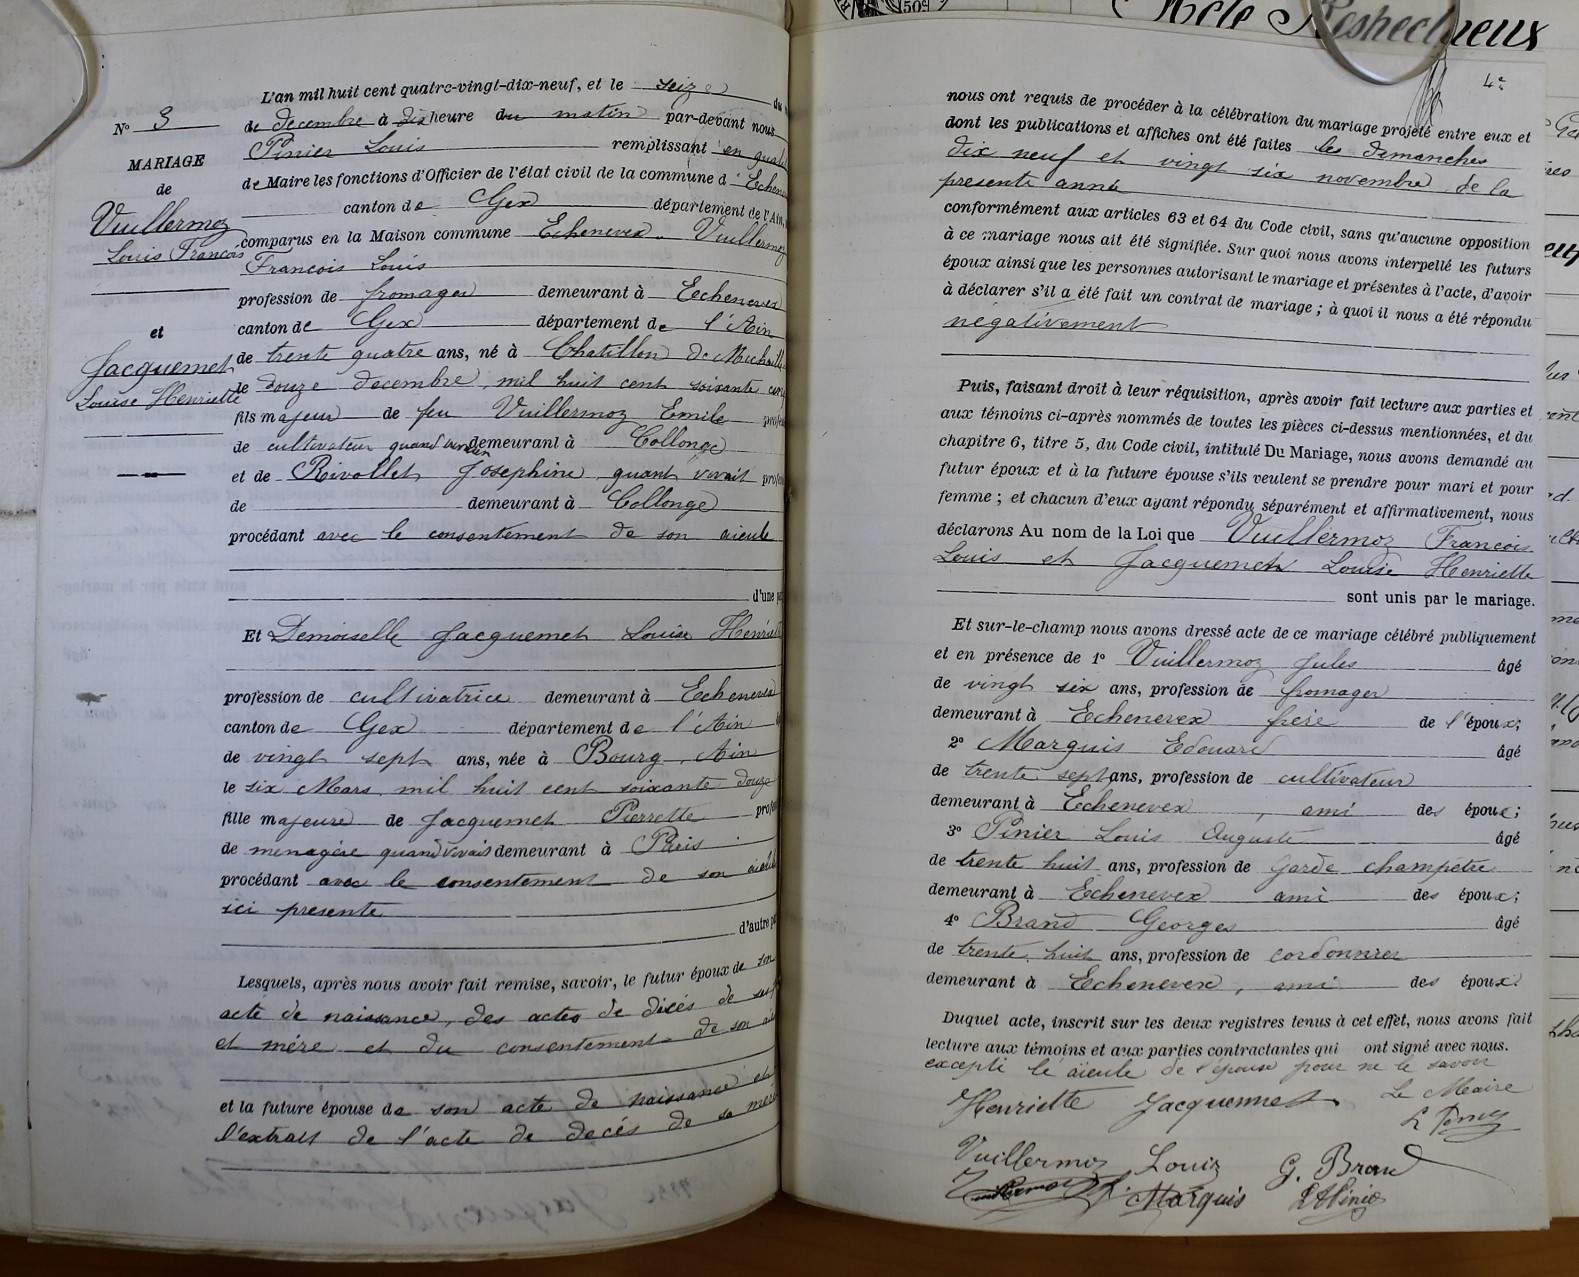 N° 3
MARIAGE
de
Vuillermoz
Louis François
et
Jacquemet
Louise Henriette
L'an mil huit cent quatre-vingt-dix-neuf, et le seize du
de decembre à dix heure du matin par-devant nous
Pinier Louis remplissant en qual
de Maire les fonctions d'Officier de l'état civil de la commune d' Echen
canton de Gex département de l'Ain,
comparus en la Maison commune Echenevex. Vuillermoz
François Louis
profession de fromager demeurant à Echenevex
canton de Gex département de l'Ain
de trente quatre ans, né à Chatillon de Michaille
le douze decembre, mil huit cent soixante cinq
fils majeur de feu Vuillermoz Emile profes
de cultivateur quand demeurant à Collonge
et de Rivollet Josephine quant vivait profes
de demeurant à Collonge
procédant avec le consentement de son aieule
d'une pa
Et Demoiselle Jacquemet Louise Henriett
profession de cultivatrice demeurant à Echenevex
canton de Gex département de l'Ain
de vingt sept ans, née à Bourg, Ain
le six Mars mil huit cent soixante douze
fille majeure de Jacquemet Pierrette profes
de menagère quand vivais demeurant à Paris
procédant avec le consentement de son aieule
ici presente
d'autre pa
Lesquels, après nous avoir fait remise, savoir, le futur époux de son
acte de naissance, des actes de décés de ses p
et mére et du consentement de son aie
et la future épouse de son acte de naissance et
l'extrait de l'acte de decés de sa mére
Acte Respectueux
50c
4e
nous ont requis de procéder à la célébration du mariage projeté entre eux et
dont les publications et affiches ont été faites les dimanches
dix neuf et vingt six novembre de la
presente année
conformément aux articles 63 et 64 du Code civil, sans qu'aucune opposition
à ce mariage nous ait été signifiée. Sur quoi nous avons interpellé les futurs
époux ainsi que les personnes autorisant le mariage et présentes à l'acte, d'avoir
à déclarer s'il a été fait un contrat de mariage ; à quoi il nous a été répondu
négativement
Puis, faisant droit à leur réquisition, après avoir fait lecture aux parties et
aux témoins ci-après nommés de toutes les pièces ci-dessus mentionnées, et du
chapitre 6, titre 5, du Code civil, intitulé Du Mariage, nous avons demandé au
futur époux et à la future épouse s'ils veulent se prendre pour mari et pour
femme ; et chacun d'eux ayant répondu séparément et affirmativement, nous
déclarons Au nom de la Loi que Vuillermoz François
Louis et Jacquemet Louise Henriette
sont unis par le mariage.
Et sur-le-champ nous avons dressé acte de ce mariage célébré publiquement
et en présence de 1° Vuillermoz Jules âgé
de vingt six ans, profession de fromager
demeurant à Echenevex frère de l'époux;
2° Marquis Edouard âgé
de trente sept ans, profession de cultivateur
demeurant à Echenevex, ami des époux;
3° Pinier Louis Auguste âgé
de trente huit ans, profession de garde champetre
demeurant à Echenevex ami des époux;
4° Brand Georges âgé
de trente huit ans, profession de cordonnier
demeurant à Echenevex, ami des époux.
Duquel acte, inscrit sur les deux registres tenus à cet effet, nous avons fait
lecture aux témoins et aux parties contractantes qui ont signé avec nous.
excepté le aïeule de l'épouse pour ne le savoir
Henriette Jacquemet Le Maire
Vuillermoz Louis G. Brand
Marquis